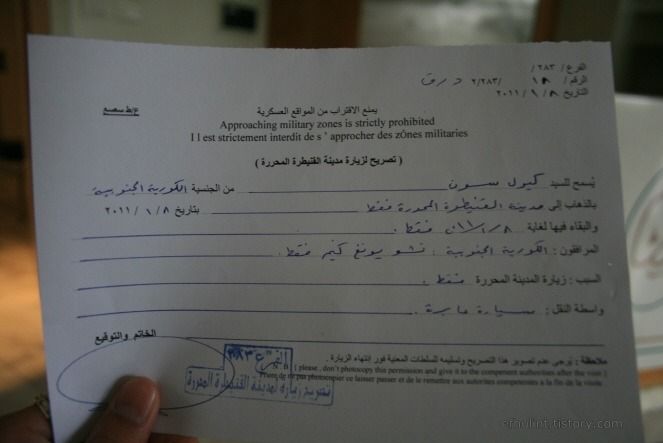 الفرع / ٢٨٣ /
الرقم / ١٨ /٢/٢٨٣
التاريخ ٨ / ١ / ٢٠١١
يمنع الاقتراب من المواقع العسكرية
Approaching military zones is strictly prohibited
I l est strictement interdit de s ' approcher des zônes militaries
( تصريح لزيارة مدينة القنيطرة المحررة )
يُسمح للسيد كيول سون من الجنسية الكورية الجنوبية
بالذهاب إلى مدينة القنيطرة المحررة فقط بتاريخ ٨ / ١ / ٢٠١١
والبقاء فيها لغاية ٨/١/٢٠١١ فقط .
المرافقون : الكورية الجنوبية :
السبب : زيارة المدينة المحررة فقط .
واسطة النقل : سيارة عابرة .
الخاتم والتوقيع
ملاحظة : يُرجى عدم تصوير هذا التصريح وتسليمه للسلطات المعنية فور إنتهاء الزيارة .
N. B [ please , don't photocopy this permission and give it to the compement authorities after the visit ]
de ne pas photocopier ce laisser passer et de le remettre aux autorites competentes a la fin de la visite
الفرع
تصريح زيارة لمدينة القنيطرة المحررة
erhylint.tistory.com